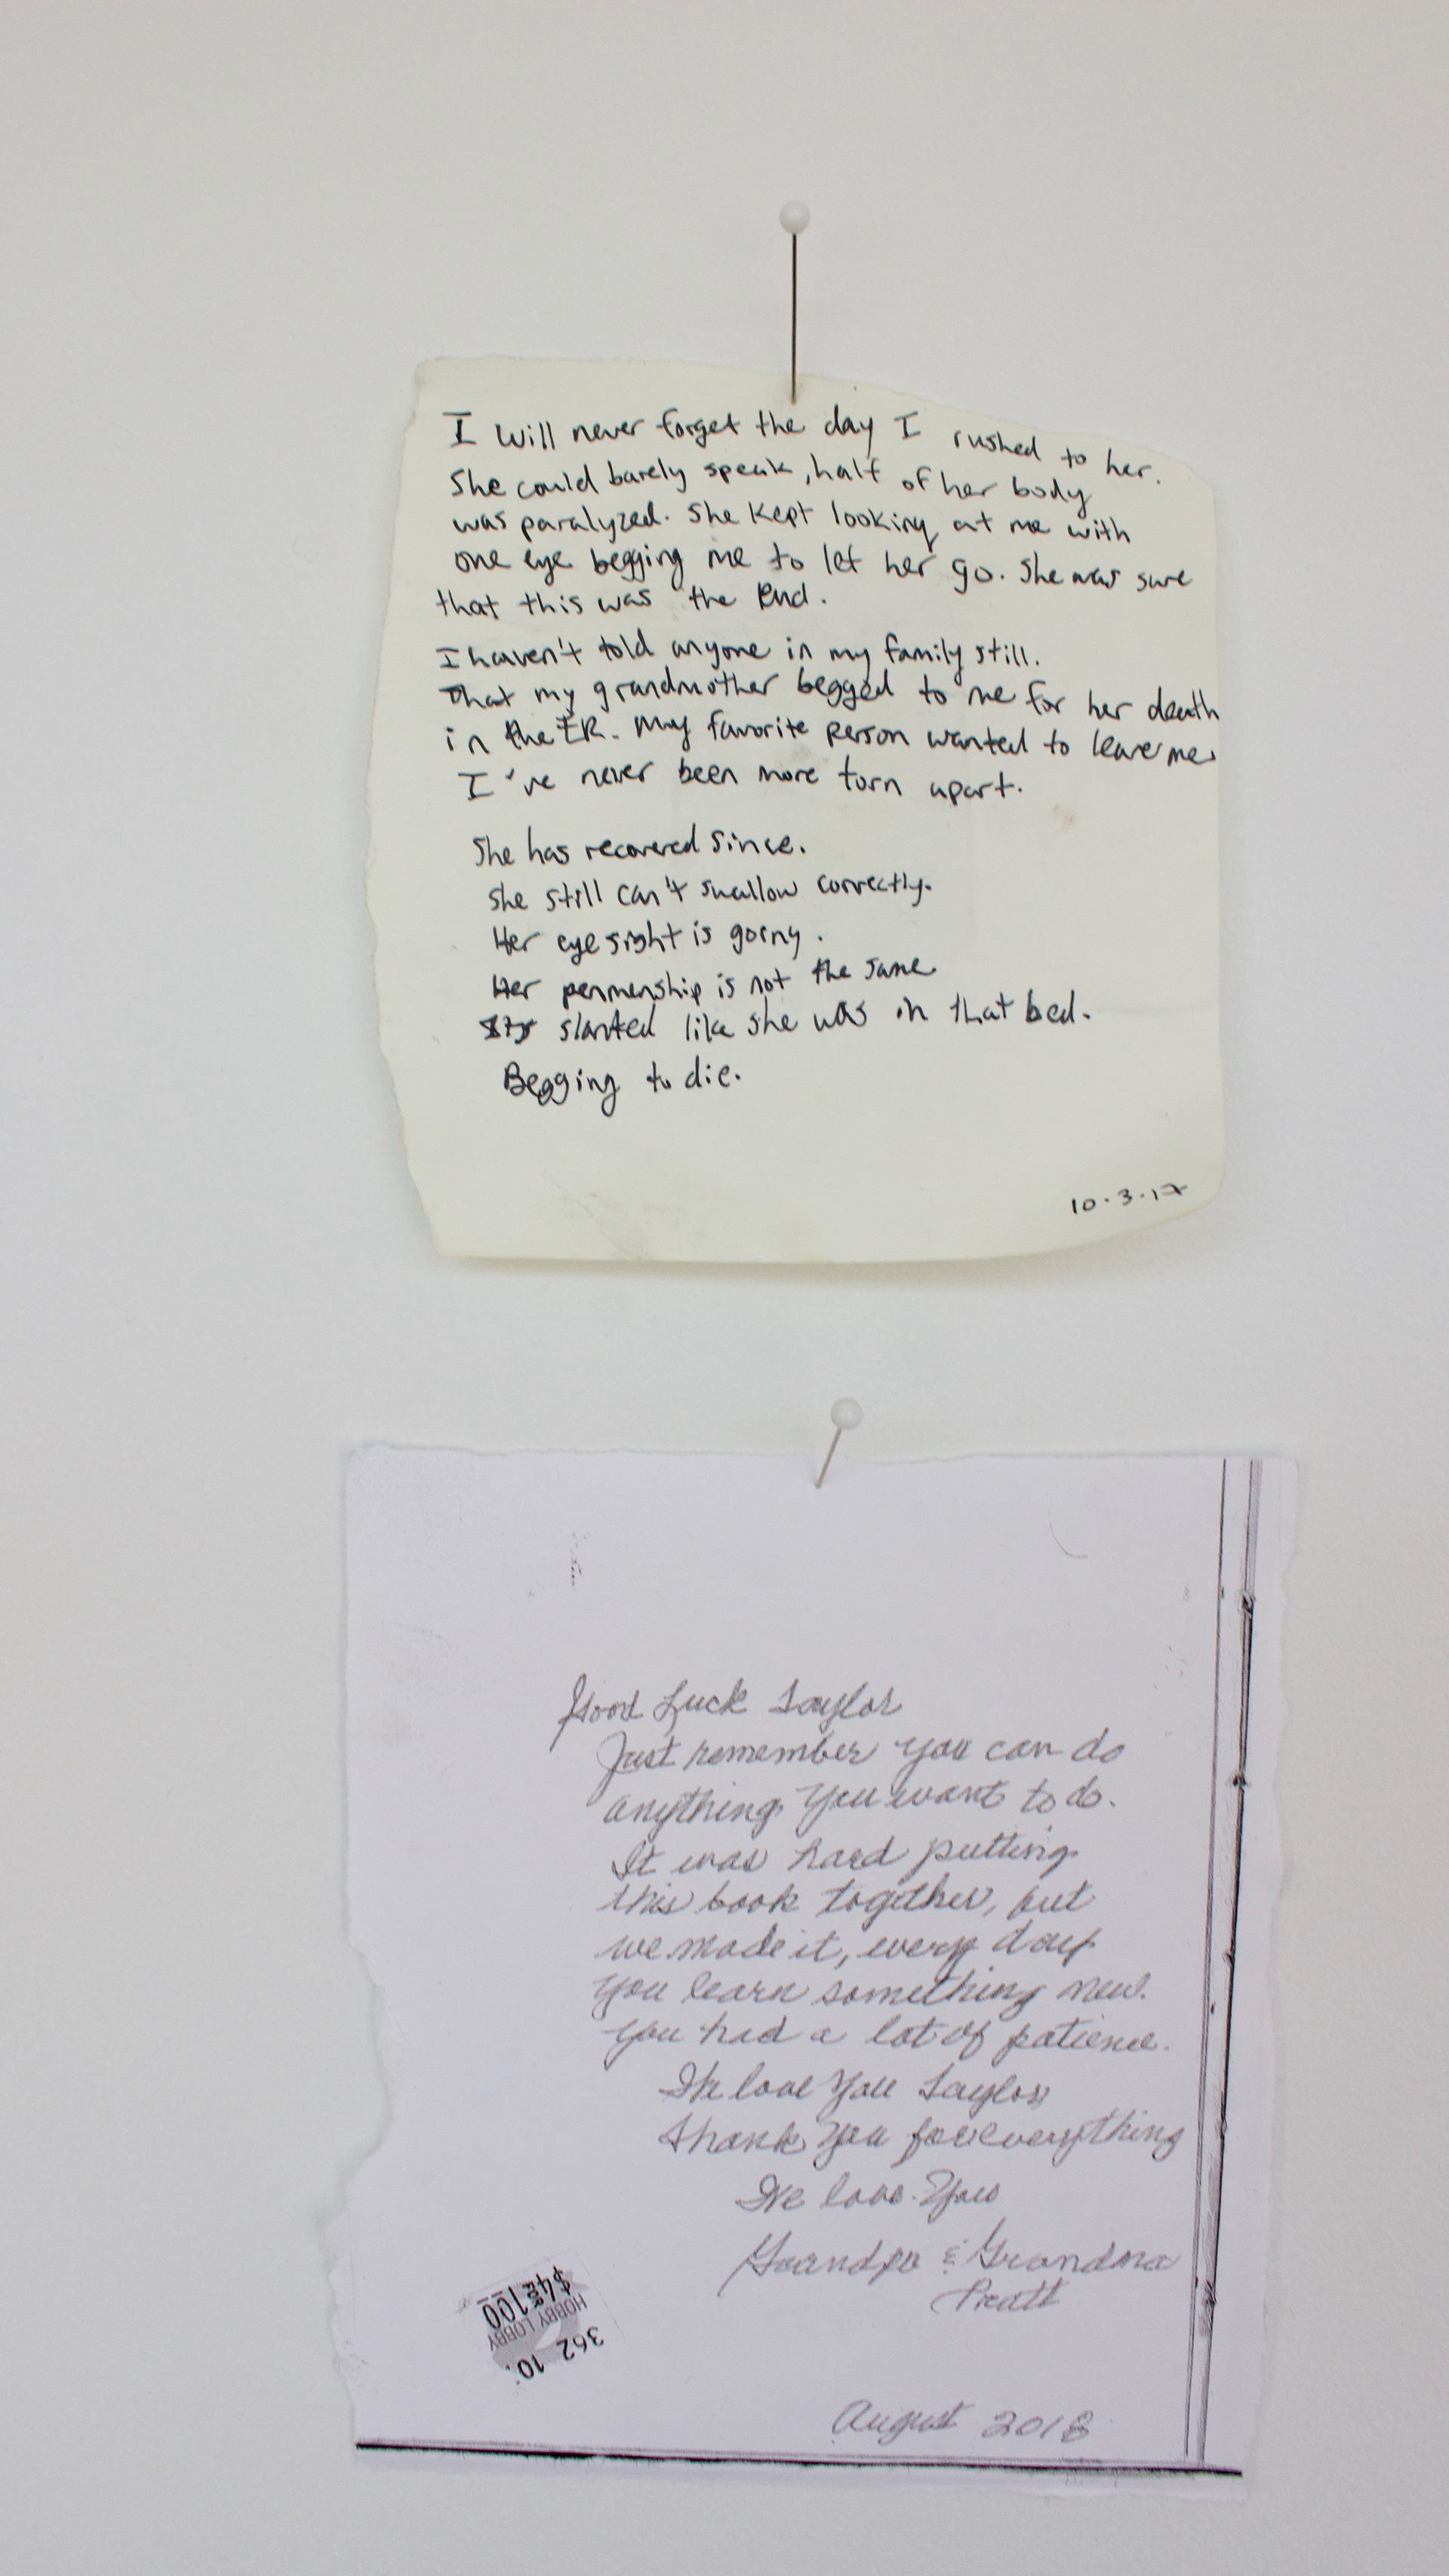 I will never forget the day I rushed to her.
She could barely speak, half of her body
was paralyzed. She kept looking at me with
one eye begging me to let her go. She was sure
that this was the end.
I haven't told anyone in my family still.
That my grandmother begged to me for her death
in the ER. My favorite person wanted to leave me.
I've never been more torn apart.
She has recovered since.
She still can't swallow correctly.
Her eyesight is going.
Her penmenship is not the same
It's slanted like she was in that bed.
Begging to die.
10.3.17
Good Luck Taylor
Just remember you can do
anything you want to do.
It was hard putting
this book together, but
we made it, every day
you learn something new.
You had a lot of patience.
We love you Taylor
Thank you for everything
We love you
Grandpa & Grandma
Pratt
HOBBY LOBBY
362 10.
August 2018